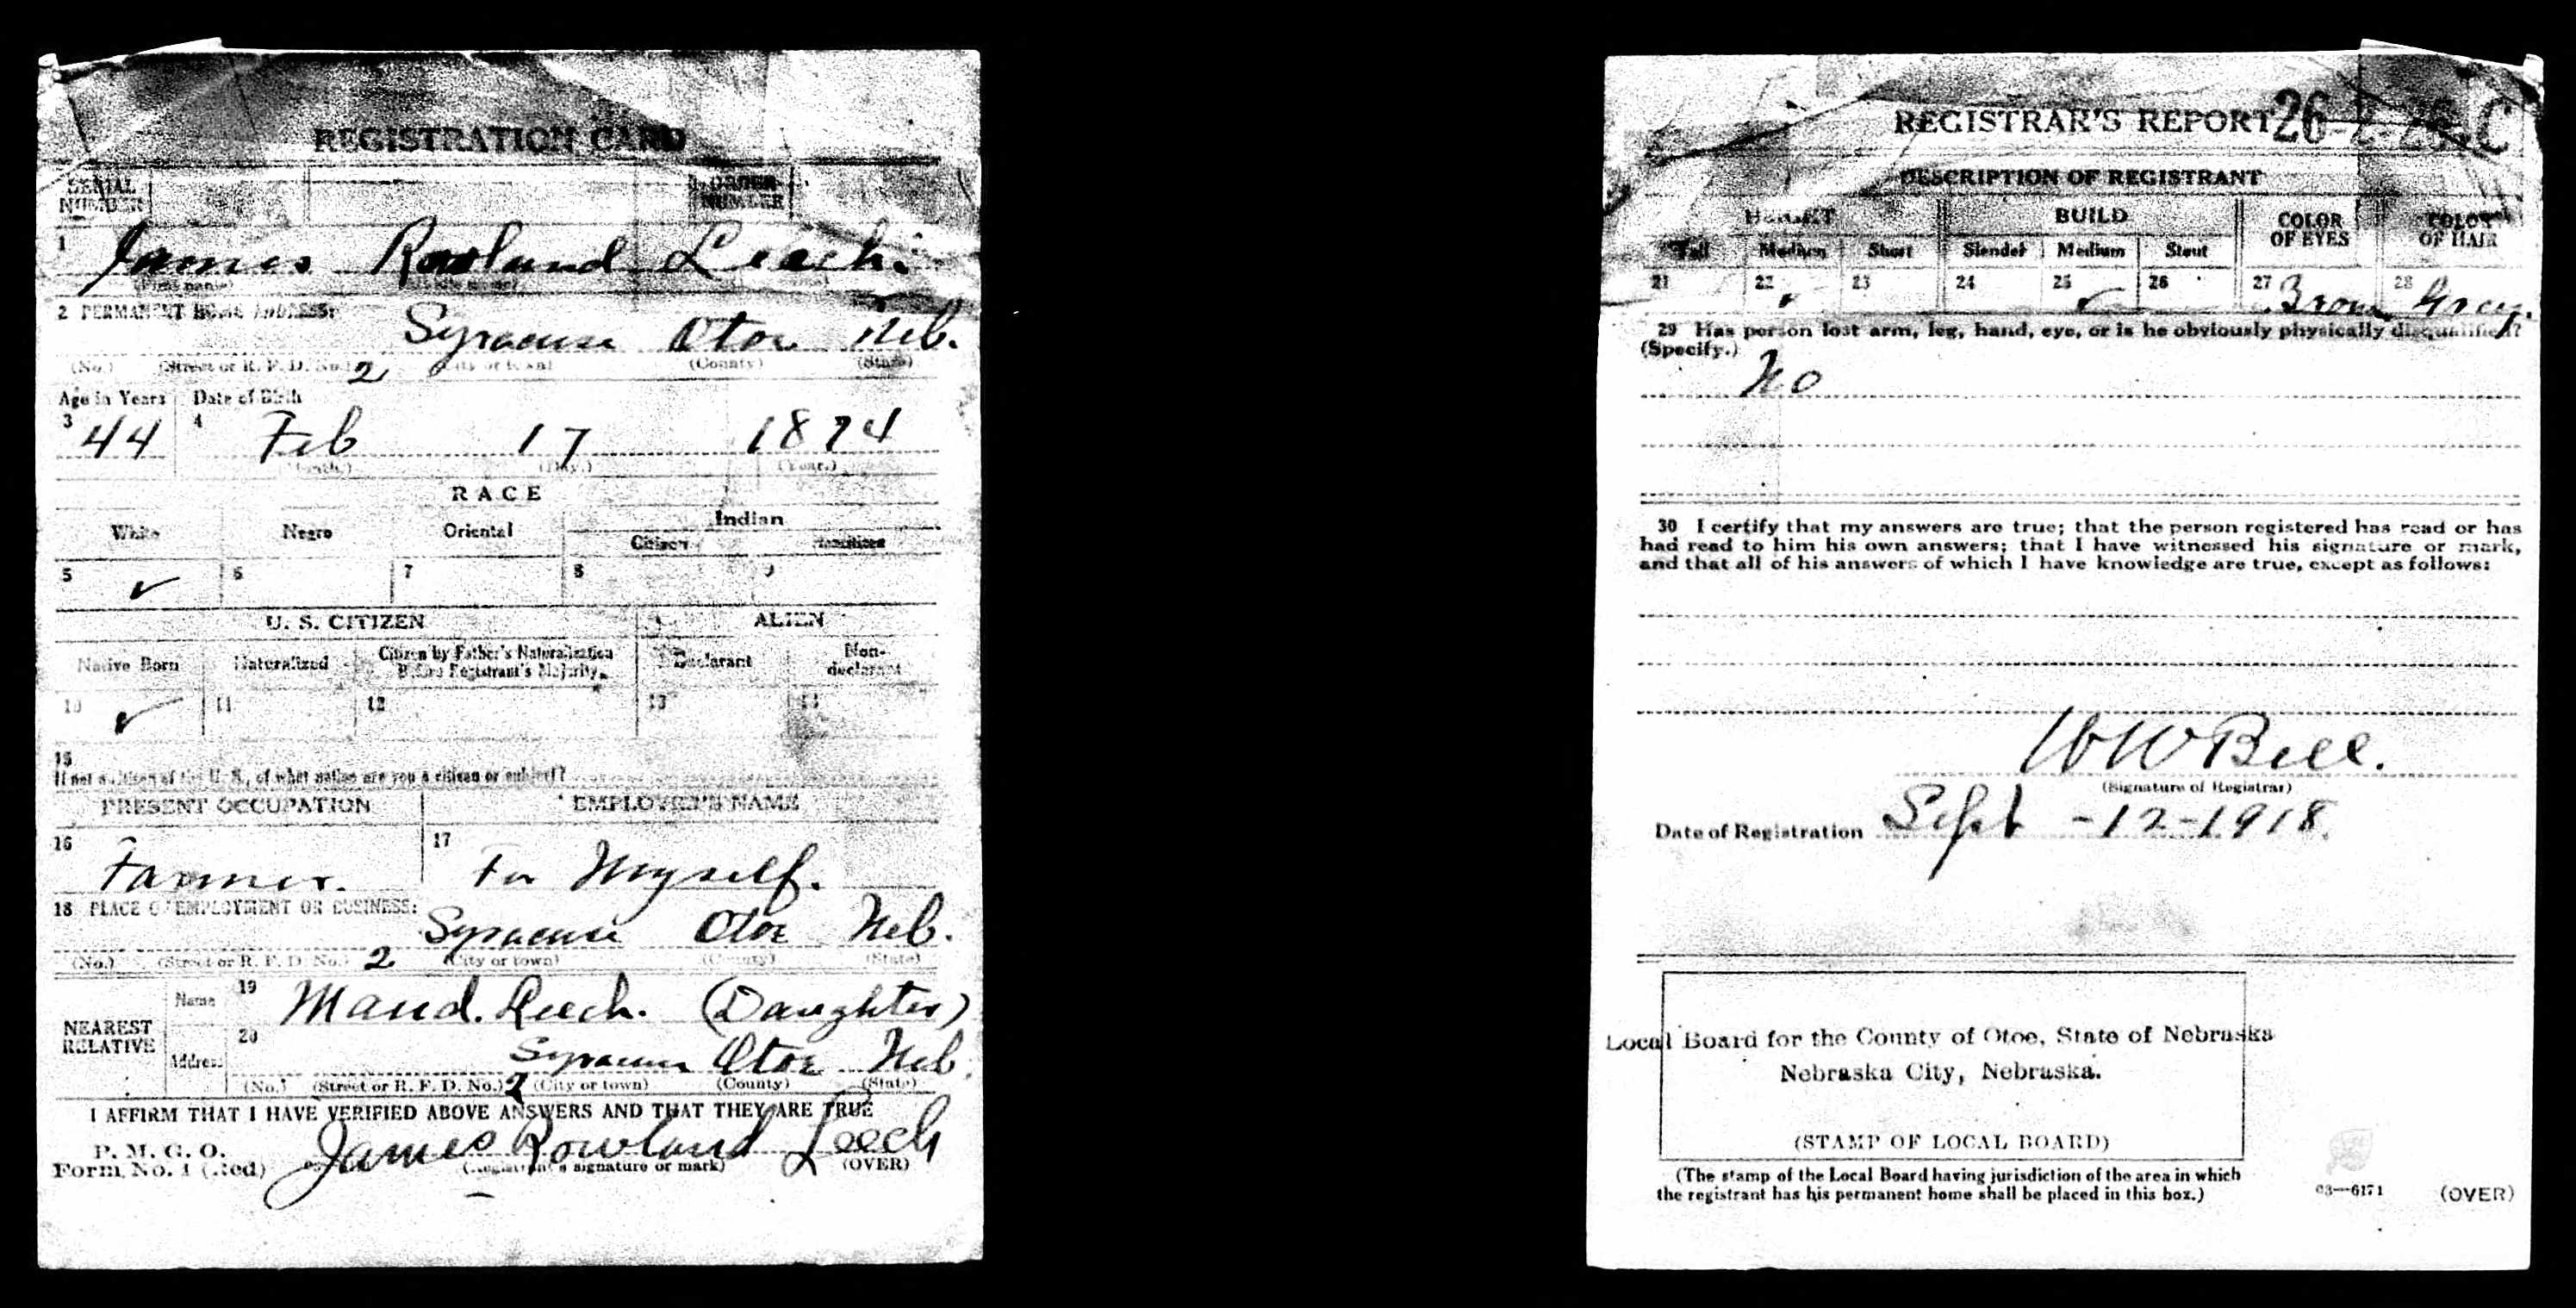 REGISTRATION CARD
SERIAL NUMBER
ORDER NUMBER
1 James Rowland Leech.
(First name)
2 PERMANENT HOME ADDRESS:
Syracuse Otoe Neb.
(No.) (Street or R. F. D. No.) 2 (City or town) (County) (State)
Age in Years Date of Birth
3 44 4 Feb 17 1874
(Month.) (Day.) (Year.)
RACE
White Negro Oriental Indian
Citizen Noncitizen
5 ✓ 6 7 8 9
U. S. CITIZEN ALIEN
Native Born Naturalized Citizen by Father's Naturalization Before Registrant's Majority Declarant Non-declarant
10 ✓ 11 12 13 14
15
If not a citizen of the U. S., of what nation are you a citizen or subject?
PRESENT OCCUPATION EMPLOYER'S NAME
16 Farmer. 17 For Myself.
18 PLACE OF EMPLOYMENT OR BUSINESS:
Syracuse Otoe Neb.
(No.) (Street or R. F. D. No.) 2 (City or town) (County) (State)
NEAREST RELATIVE
Name 19 Maud. Leech. (Daughter)
Address 20 Syracuse Otoe Neb.
(No.) (Street or R. F. D. No.) 2 (City or town) (County) (State)
I AFFIRM THAT I HAVE VERIFIED ABOVE ANSWERS AND THAT THEY ARE TRUE
P. M. G. O.
Form No. 1 (Red) James Rowland Leech
(Registrant's signature or mark) (OVER)
REGISTRAR'S REPORT
DESCRIPTION OF REGISTRANT
HEIGHT BUILD COLOR OF EYES COLOR OF HAIR
Tall Medium Short Slender Medium Stout
21 22 ✓ 23 24 25 ✓ 26 27 Brown 28 Gray.
29 Has person lost arm, leg, hand, eye, or is he obviously physically disqualified?
(Specify.) No
30 I certify that my answers are true; that the person registered has read or has
had read to him his own answers; that I have witnessed his signature or mark,
and that all of his answers of which I have knowledge are true, except as follows:
W W Bell.
(Signature of Registrar)
Date of Registration Sept -12-1918.
Local Board for the County of Otoe, State of Nebraska
Nebraska City, Nebraska.
(STAMP OF LOCAL BOARD)
(The stamp of the Local Board having jurisdiction of the area in which
the registrant has his permanent home shall be placed in this box.)
03—6171 (OVER)